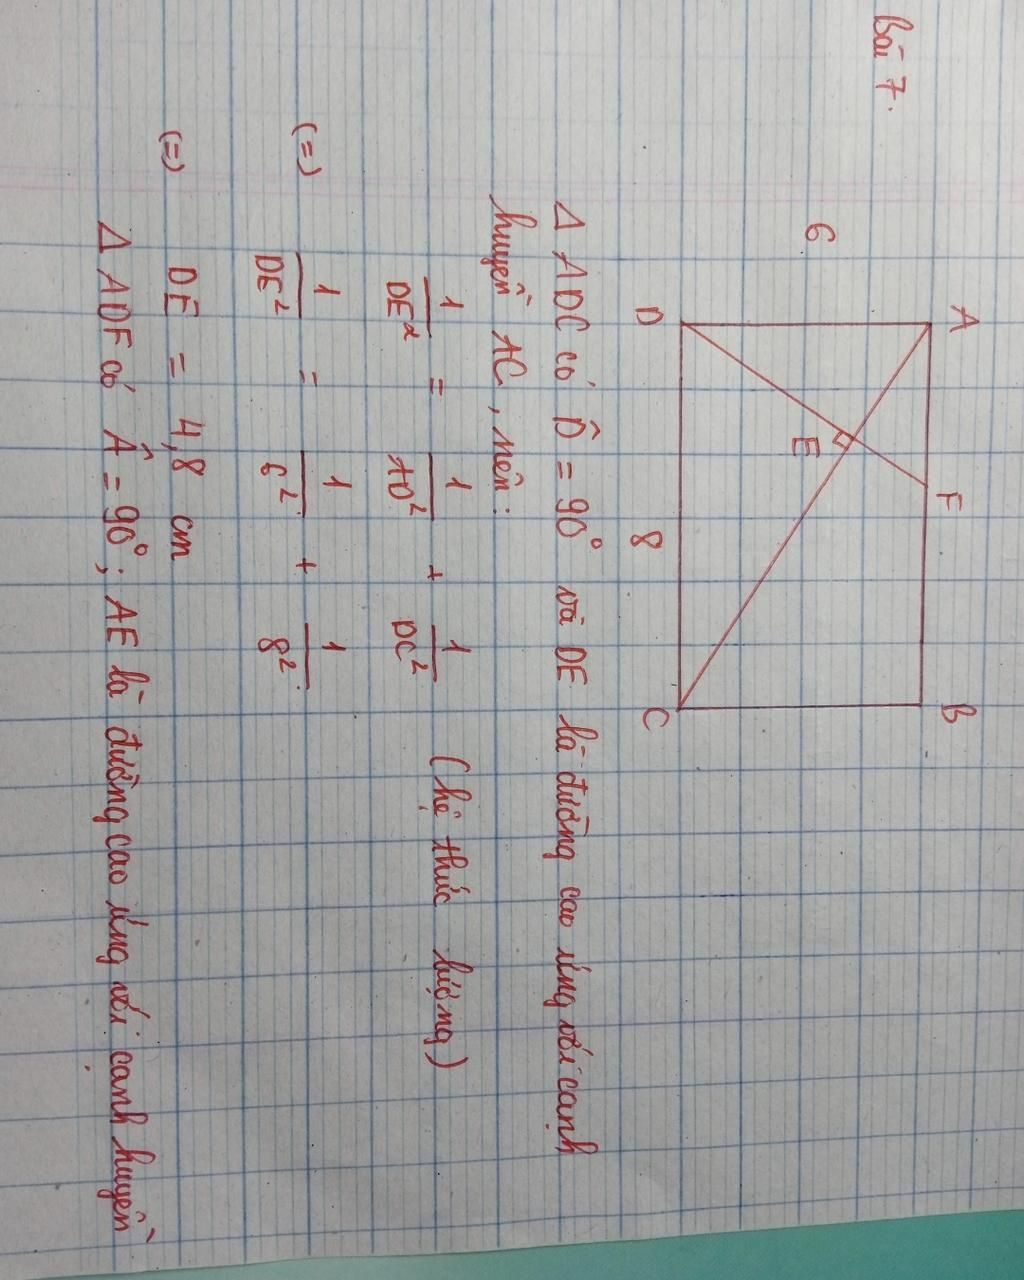 Bài 7.
A F B
6
E
D 8 C
Δ ADC có D̂ = 90° và DE là đường cao ứng với cạnh
huyền AC, nên:
1/DE² = 1/AD² + 1/DC² (hệ thức lượng)
(=) 1/DE² = 1/6² + 1/8²
(=) DE = 4,8 cm
Δ ADF có Â = 90°; AE là đường cao ứng với cạnh huyền